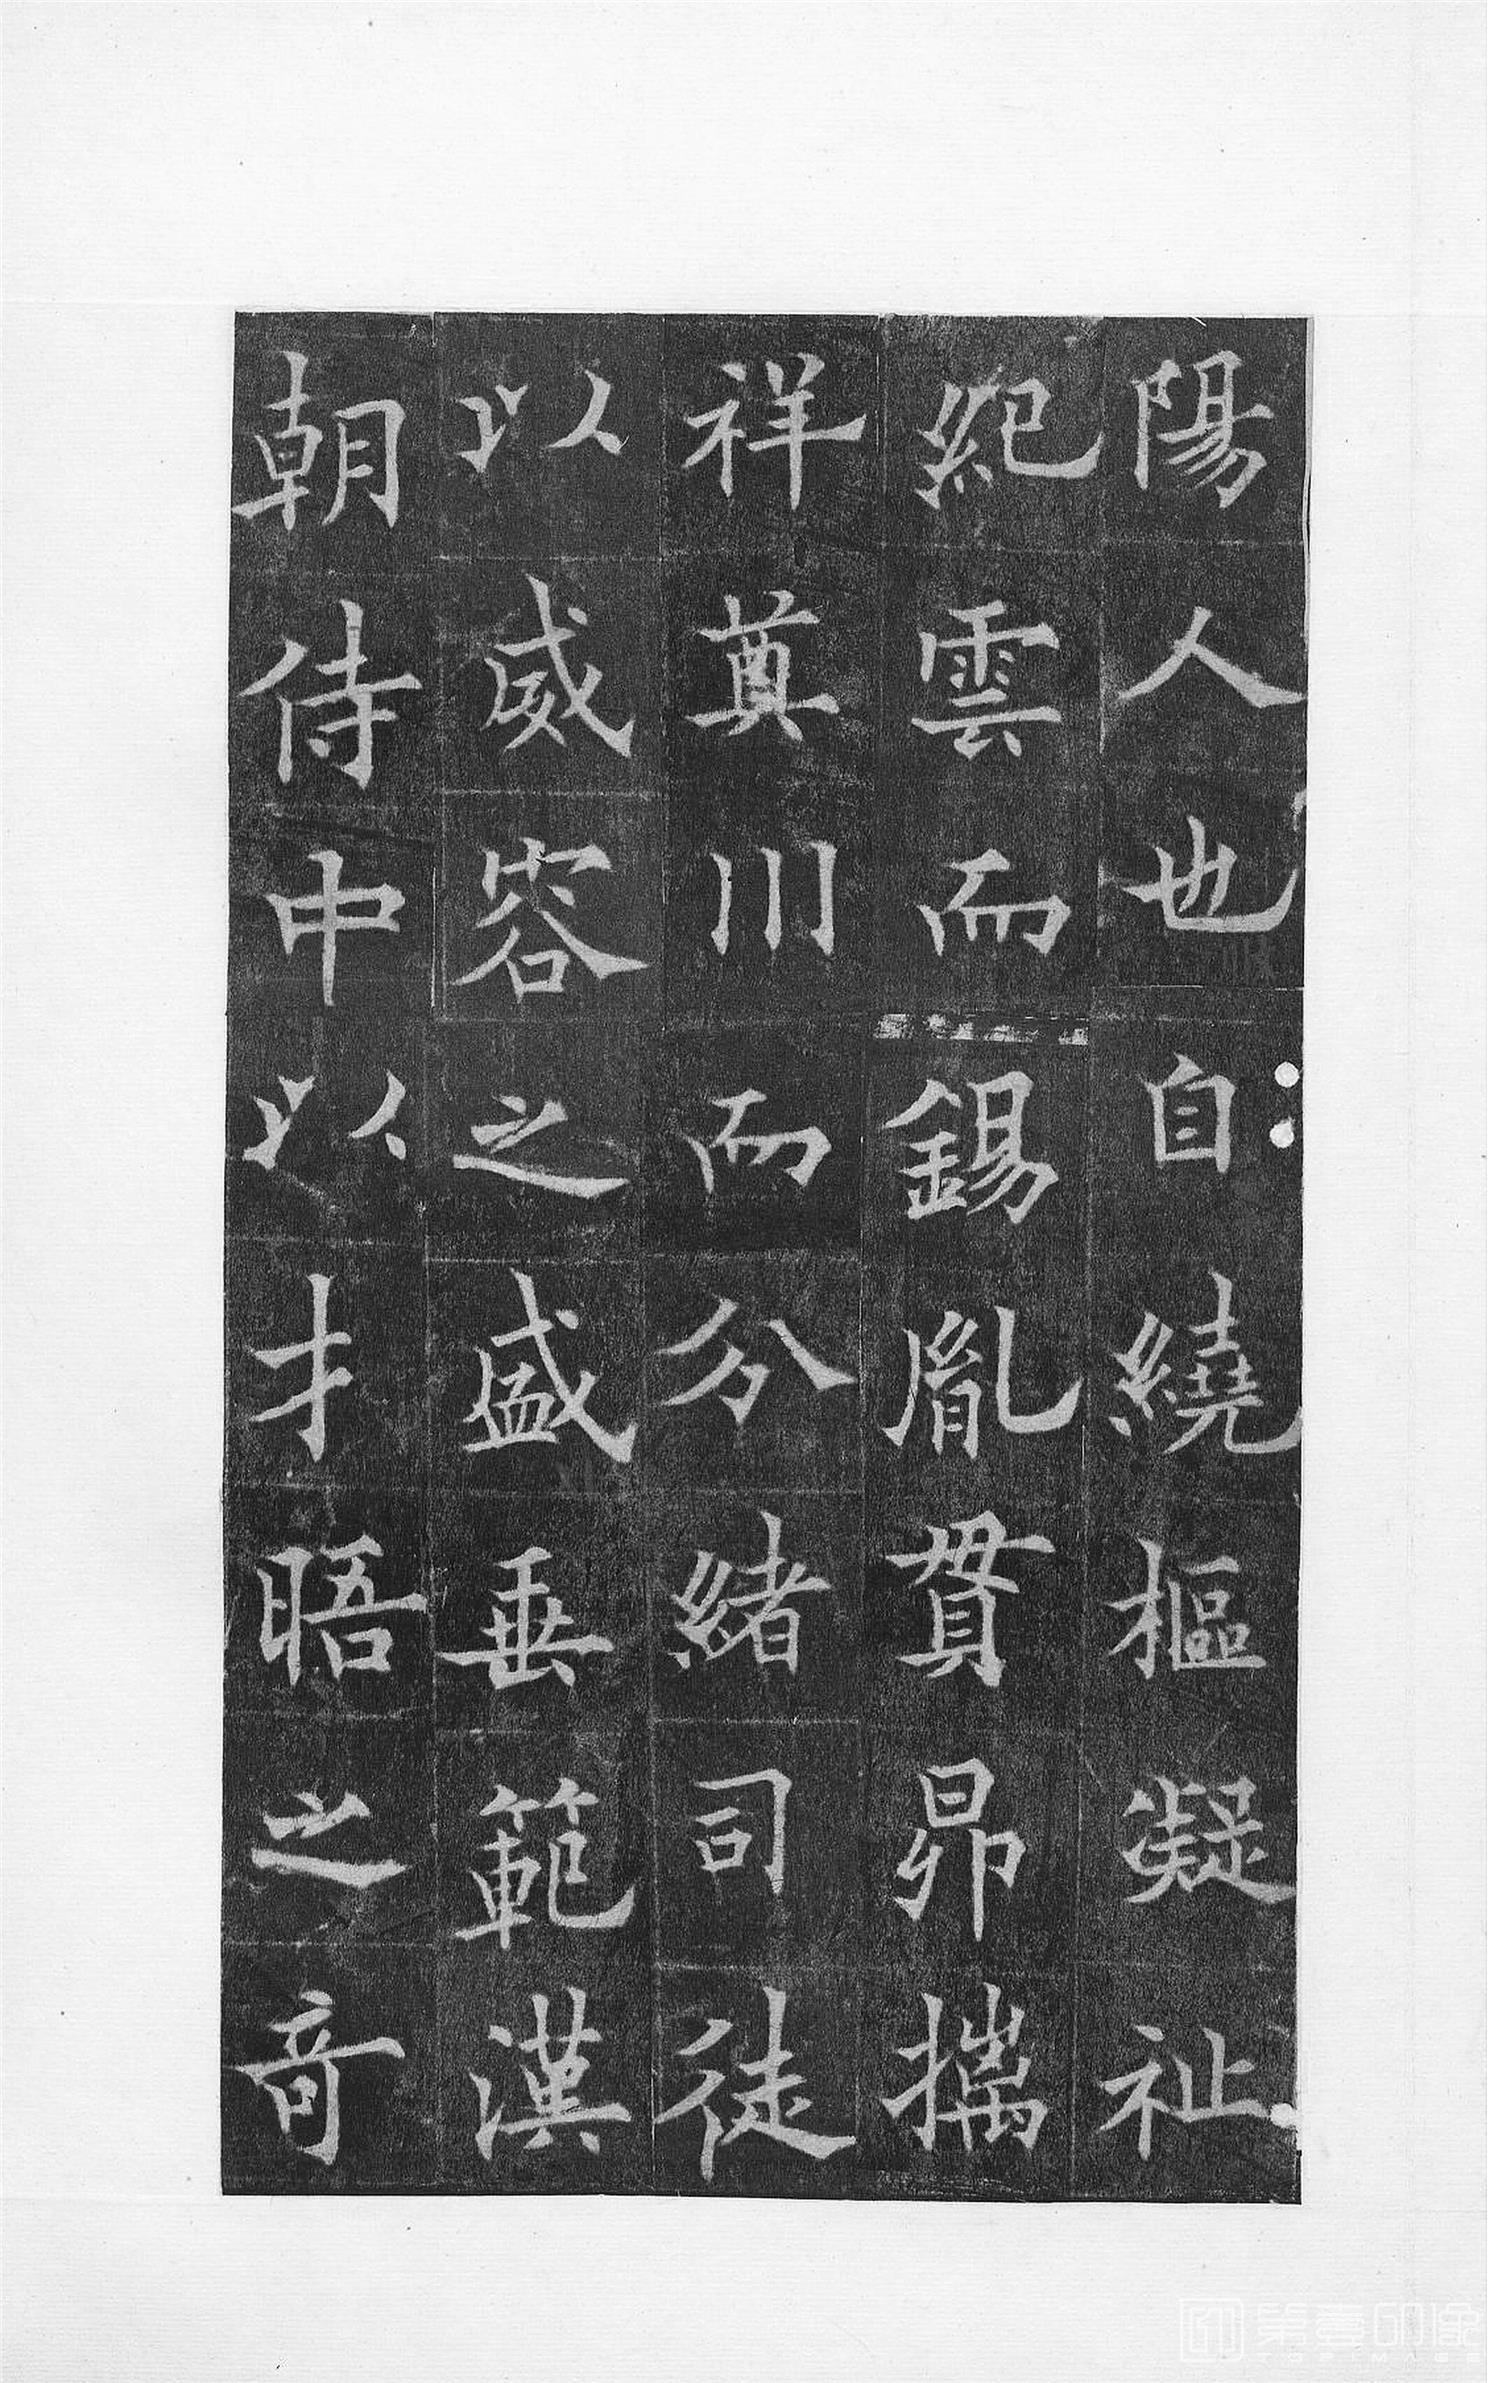 陽人也自繞樞凝祉
紀雲而錫胤貫昴摛
祥奠川而分緒司徒
以威容之盛垂範漢
朝侍中以才晤之奇
第壹印像
TOPIMAGE